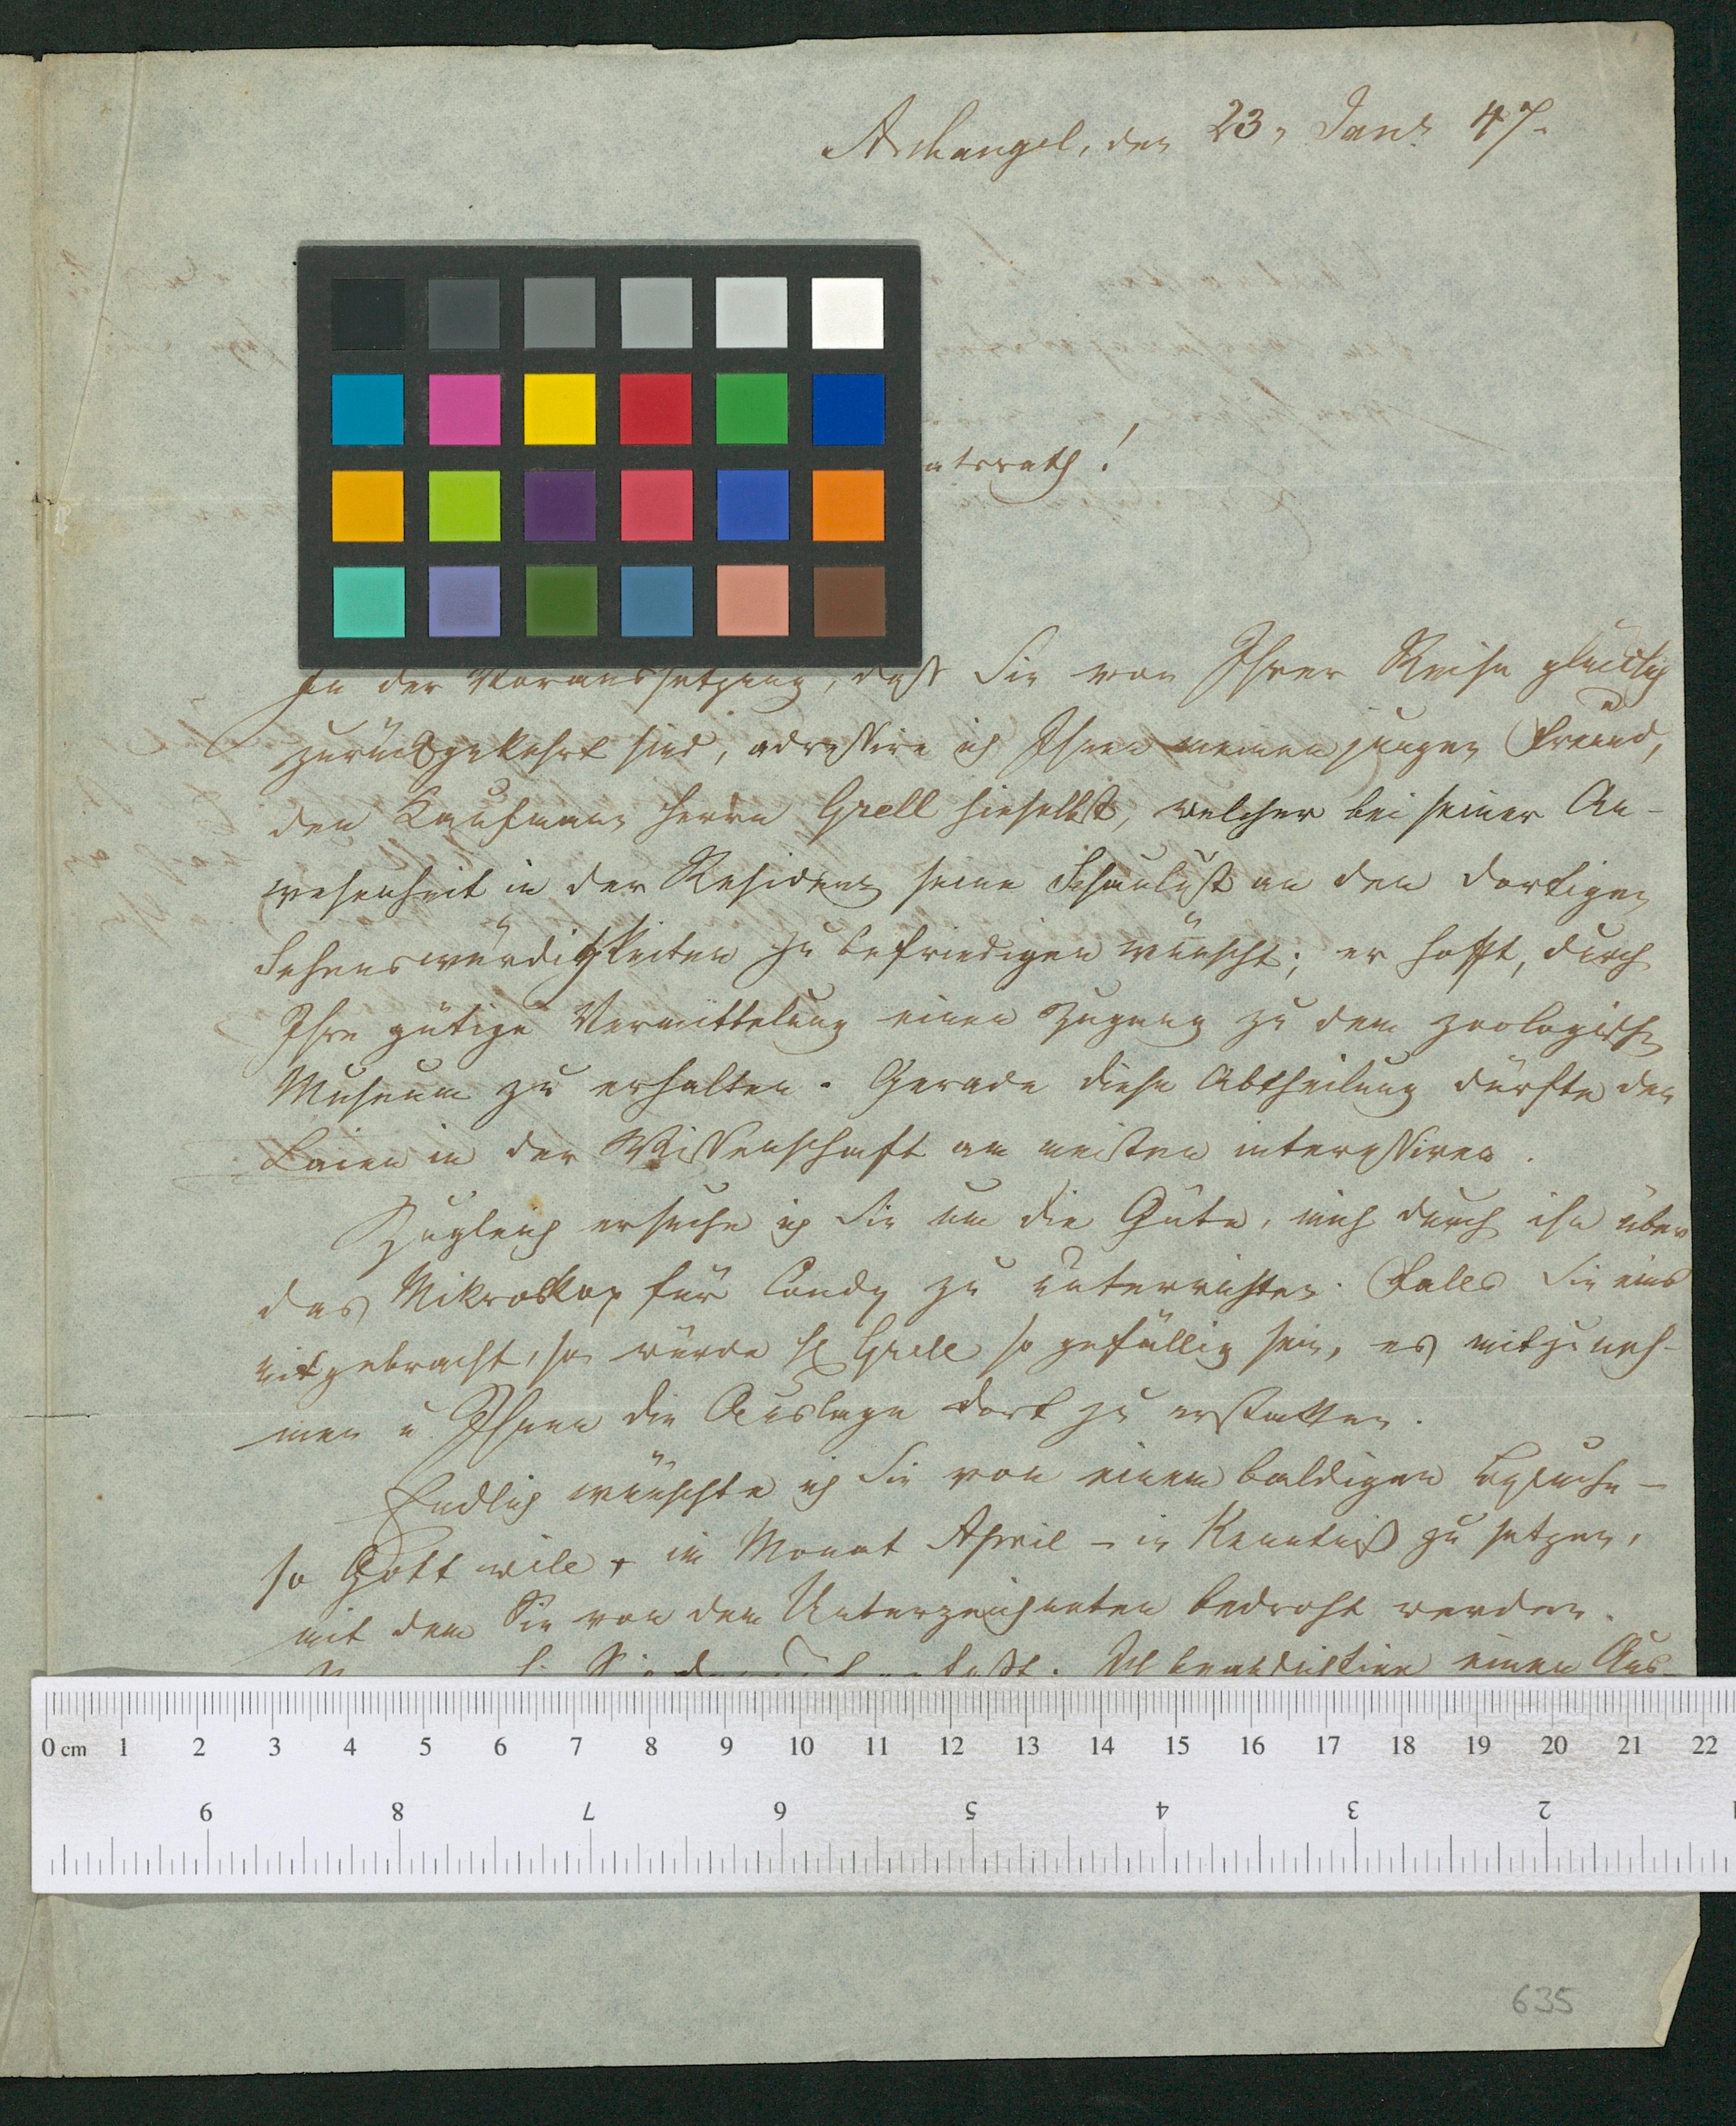 Archangel, den 23. Janr 47.
atsrath!
In der Voraussetzung, daß Sie von Ihrer Reise glücklich
zurückgekehrt sind, adressire ich Ihnen meinen jungen Freund,
den Kaufmann Herrn Grell hieselbst, welcher bei seiner An-
wesenheit in der Residenz seine Schaulust an den dortigen
Sehenswürdigkeiten zu befriedigen wünscht; er hofft, durch
Ihre gütige Vermittelung einen Zugang zu dem zoologischen
Museum zu erhalten. Gerade diese Abtheilung dürfte den
Laien in der Wissenschaft am meisten interessiren.
Zugleich ersuche ich Sie um die Güte, mich durch ihn über
das Mikroskop für Condy zu unterrichten. Falls Sie eins
mitgebracht, so würde H Grell so gefällig sein, es mitzuneh-
men u Ihnen die Auslage dort zu erstatten.
Endlich wünschte ich Sie von einem baldigen Besuche -
so Gott will, im Monat April - in Kenntniß zu setzen,
mit dem Sie von dem Unterzeichneten bedroht werden.
Ich beabsichtige einen Aus-
0 cm 1 2 3 4 5 6 7 8 9 10 11 12 13 14 15 16 17 18 19 20 21 22
9 8 7 6 5 4 3 2
635